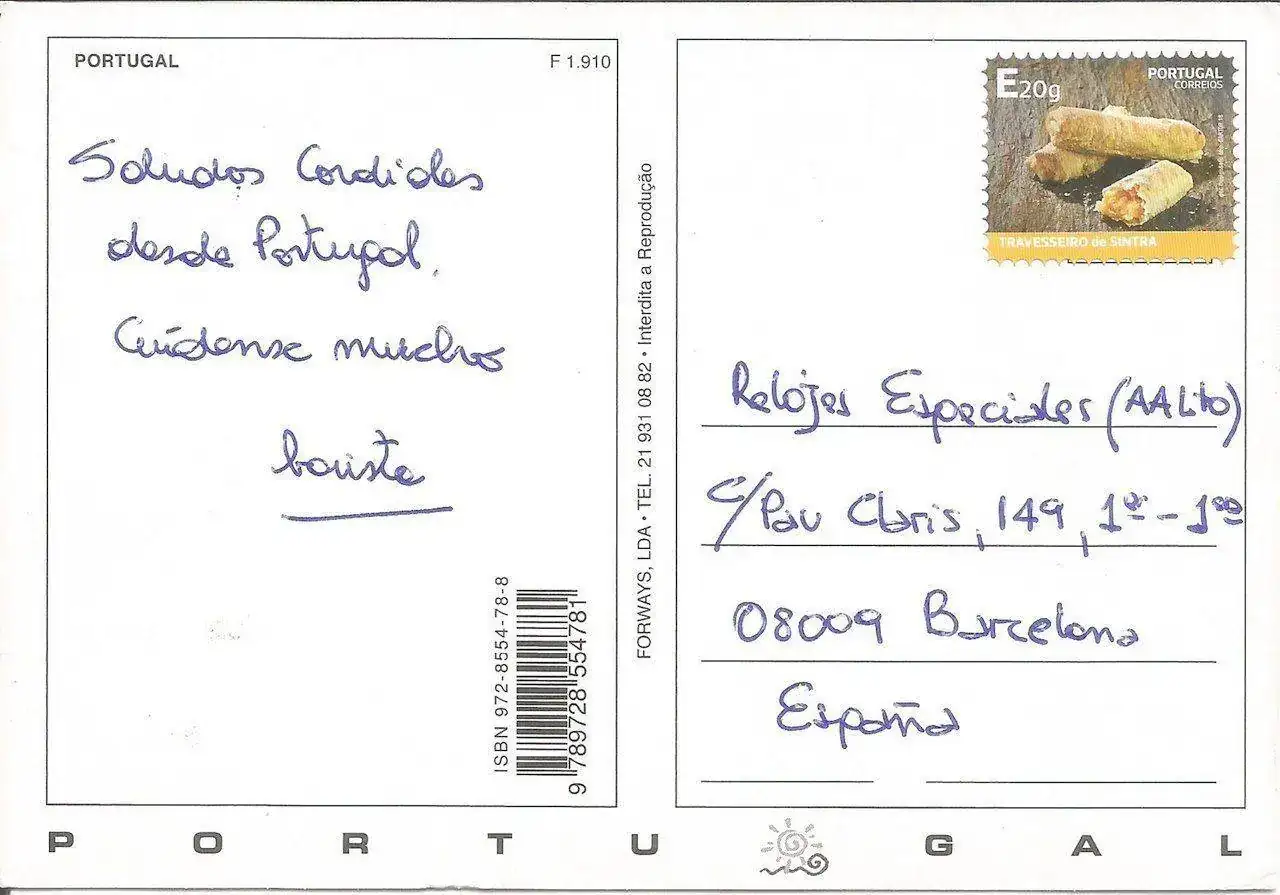 PORTUGAL
F 1.910
Saludos Cordiales
desde Portugal.
Cuídense mucho
ISBN 972-8554-78-8
9 789728 554781
FORWAYS, LDA • TEL. 21 931 08 82 • Interdita a Reprodução
E20g
PORTUGAL
CORREIOS
TRAVESSEIRO de SINTRA
Relojes Especiales (AALto)
C/Pau Claris, 149, 1º - 1ª
08009 Barcelona
España
PORTUGAL